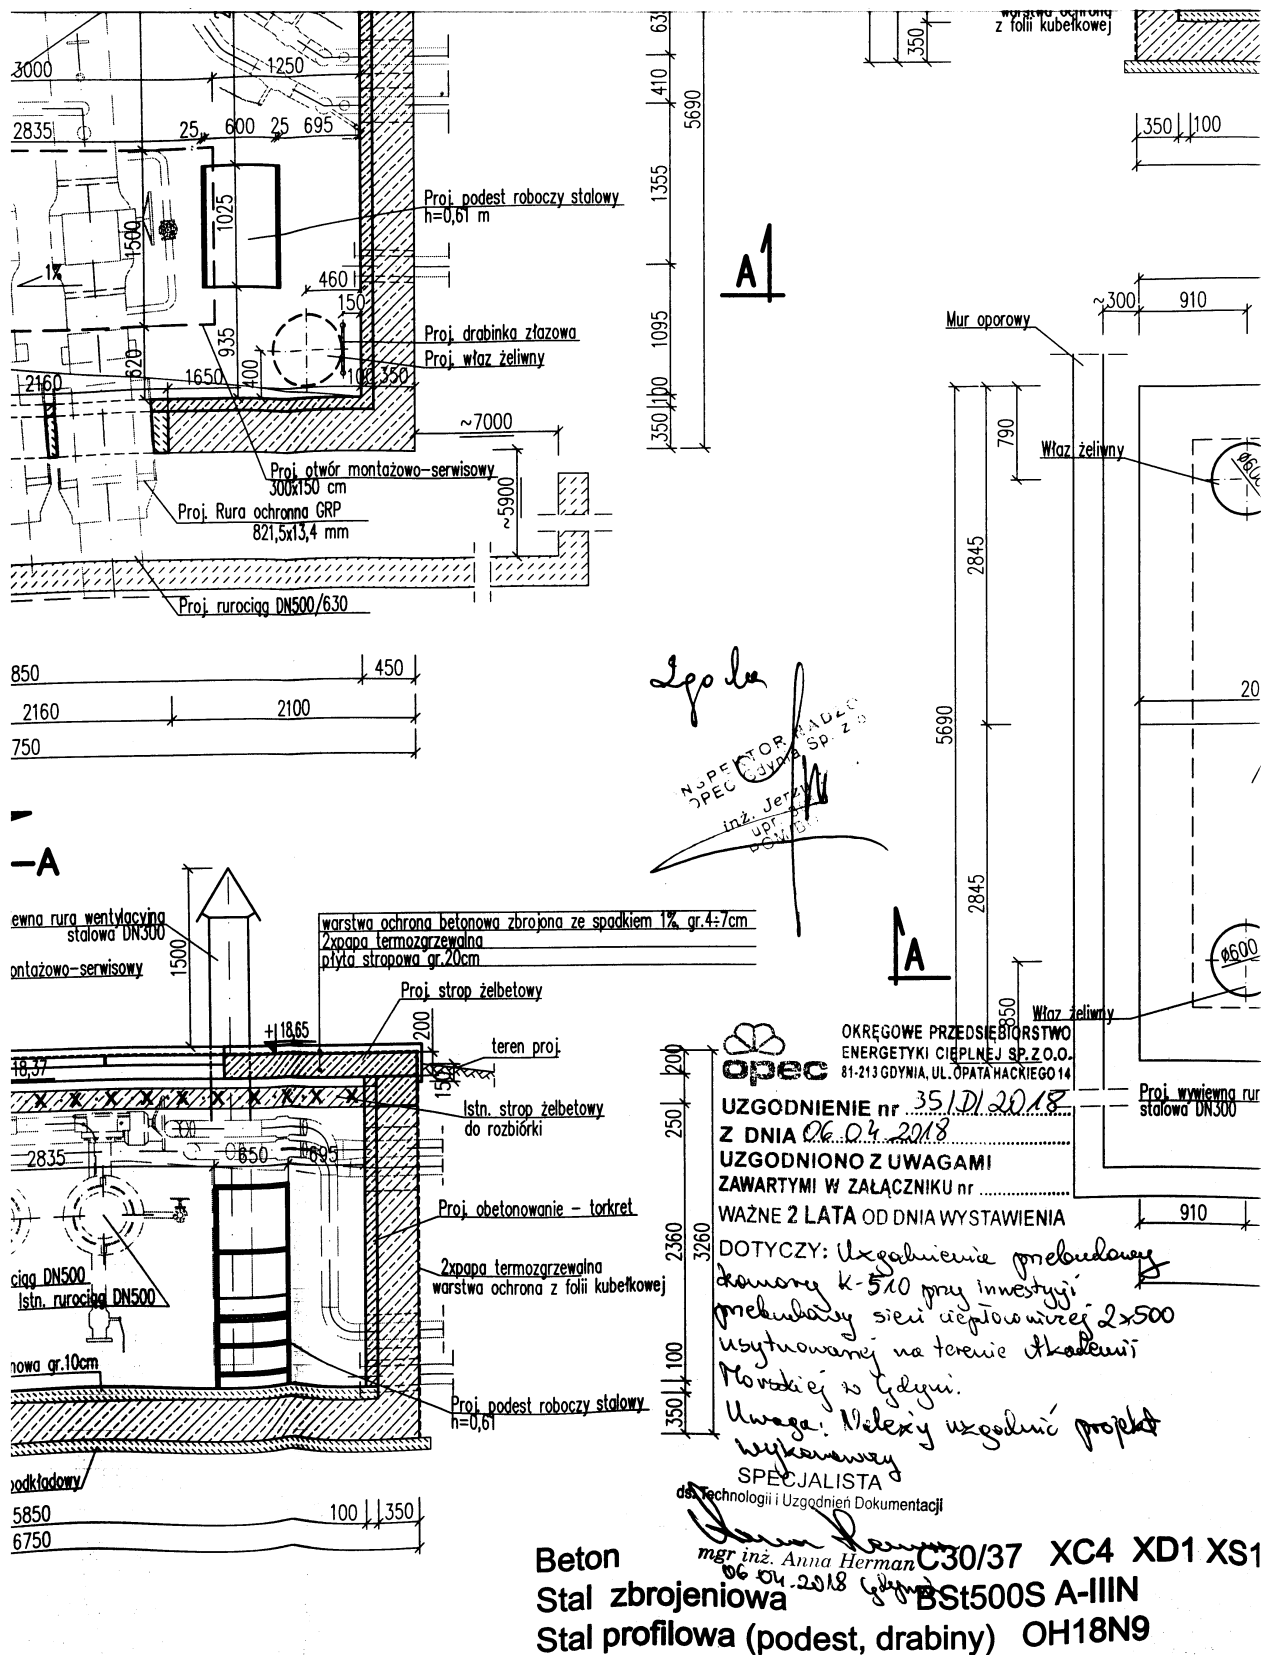 z folii kubełkowej
350
350
100
3000
1250
2835
25
600
25
695
1025
1500
1%
460
150
935
620
400
2160
1650
100
350
Proj. podest roboczy stalowy
h=0,61 m
Proj. drabinka złazowa
Proj. właz żeliwny
~7000
~5900
Proj. otwór montażowo-serwisowy
300x150 cm
Proj. Rura ochronna GRP
821,5x13,4 mm
Proj. rurociąg DN500/630
635
410
5690
1355
1095
100
350
A
~300
910
Mur oporowy
790
Właz żeliwny
2845
5690
2845
850
ø600
Właz żeliwny
A
Proj. wywiewna rur
stalowa DN300
910
20
850
450
2160
2100
750
–A
Zgoda
INSPEKTOR NADZO
OPEC Gdynia Sp. z o
inż. Jerzy
upr.
ewna rura wentylacyjna
stalowa DN300
ontażowo-serwisowy
1500
warstwa ochrona betonowa zbrojona ze spadkiem 1%, gr.4÷7cm
2xpapa termozgrzewalna
płyta stropowa gr.20cm
Proj. strop żelbetowy
+18,65
200
teren proj.
150
18,37
Istn. strop żelbetowy
do rozbiórki
2835
650
695
Proj. obetonowanie – torkret
2xpapa termozgrzewalna
warstwa ochrona z folii kubełkowej
ciąg DN500
Istn. rurociąg DN500
nowa gr.10cm
Proj. podest roboczy stalowy
h=0,61
podkładowy
5850
100
350
6750
200
2510
2360
3260
100
350
opec
OKRĘGOWE PRZEDSIĘBIORSTWO
ENERGETYKI CIEPLNEJ SP. Z O.O.
81-213 GDYNIA, UL. OPATA HACKIEGO 14
UZGODNIENIE nr 35/D/2018
Z DNIA 06.04.2018
UZGODNIONO Z UWAGAMI
ZAWARTYMI W ZAŁĄCZNIKU nr
WAŻNE 2 LATA OD DNIA WYSTAWIENIA
DOTYCZY: Uzgodnienie przebudowy
komory K-510 przy inwestycji
przebudowy sieci ciepłowniczej 2x500
usytuowanej na terenie Akademii
Morskiej w Gdyni.
Uwaga: Należy uzgodnić projekt
wykonawczy
SPECJALISTA
ds. Technologii i Uzgodnień Dokumentacji
mgr inż. Anna Herman
06.04.2018 Gdynia
Beton C30/37 XC4 XD1 XS1
Stal zbrojeniowa BSt500S A-IIIN
Stal profilowa (podest, drabiny) OH18N9